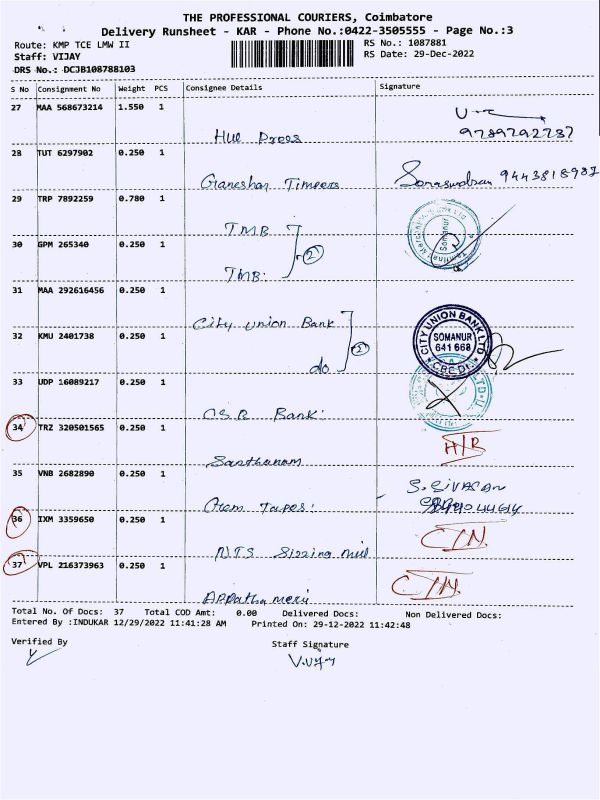 THE PROFESSIONAL COURIERS, Coimbatore
Delivery Runsheet - KAR - Phone No.:0422-3505555 - Page No.:3
Route: KMP TCE LMW II
RS No.: 1087881
Staff: VIJAY
RS Date: 29-Dec-2022
DRS No.: DCJB108788103
S No Consignment No Weight PCS Consignee Details Signature
27 MAA 568673214 1.550 1
9789792787
28 TUT 6297902 0.250 1
Ganeshar Timeers 9443818987
29 TRP 7892259 0.780 1
TMB
30 GPM 265340 0.250 1 (2)
TMB Somanur
31 MAA 292616456 0.250 1
City Union Bank
CITY UNION BANK LTD
32 KMU 2401738 0.250 1 (2) SOMANUR
641 668
do
33 UDP 16089217 0.250 1
CSB Bank
34 TRZ 320501565 0.250 1
Santhanam
35 VNB 2682890 0.250 1
S. SIVASAN
Gem Tapes
36 IXM 3359650 0.250 1
NTS Sizzing mill
37 VPL 216373963 0.250 1
Total No. Of Docs: 37 Total COD Amt: 0.00 Delivered Docs: Non Delivered Docs:
Entered By :INDUKAR 12/29/2022 11:41:28 AM Printed On: 29-12-2022 11:42:48
Verified By Staff Signature